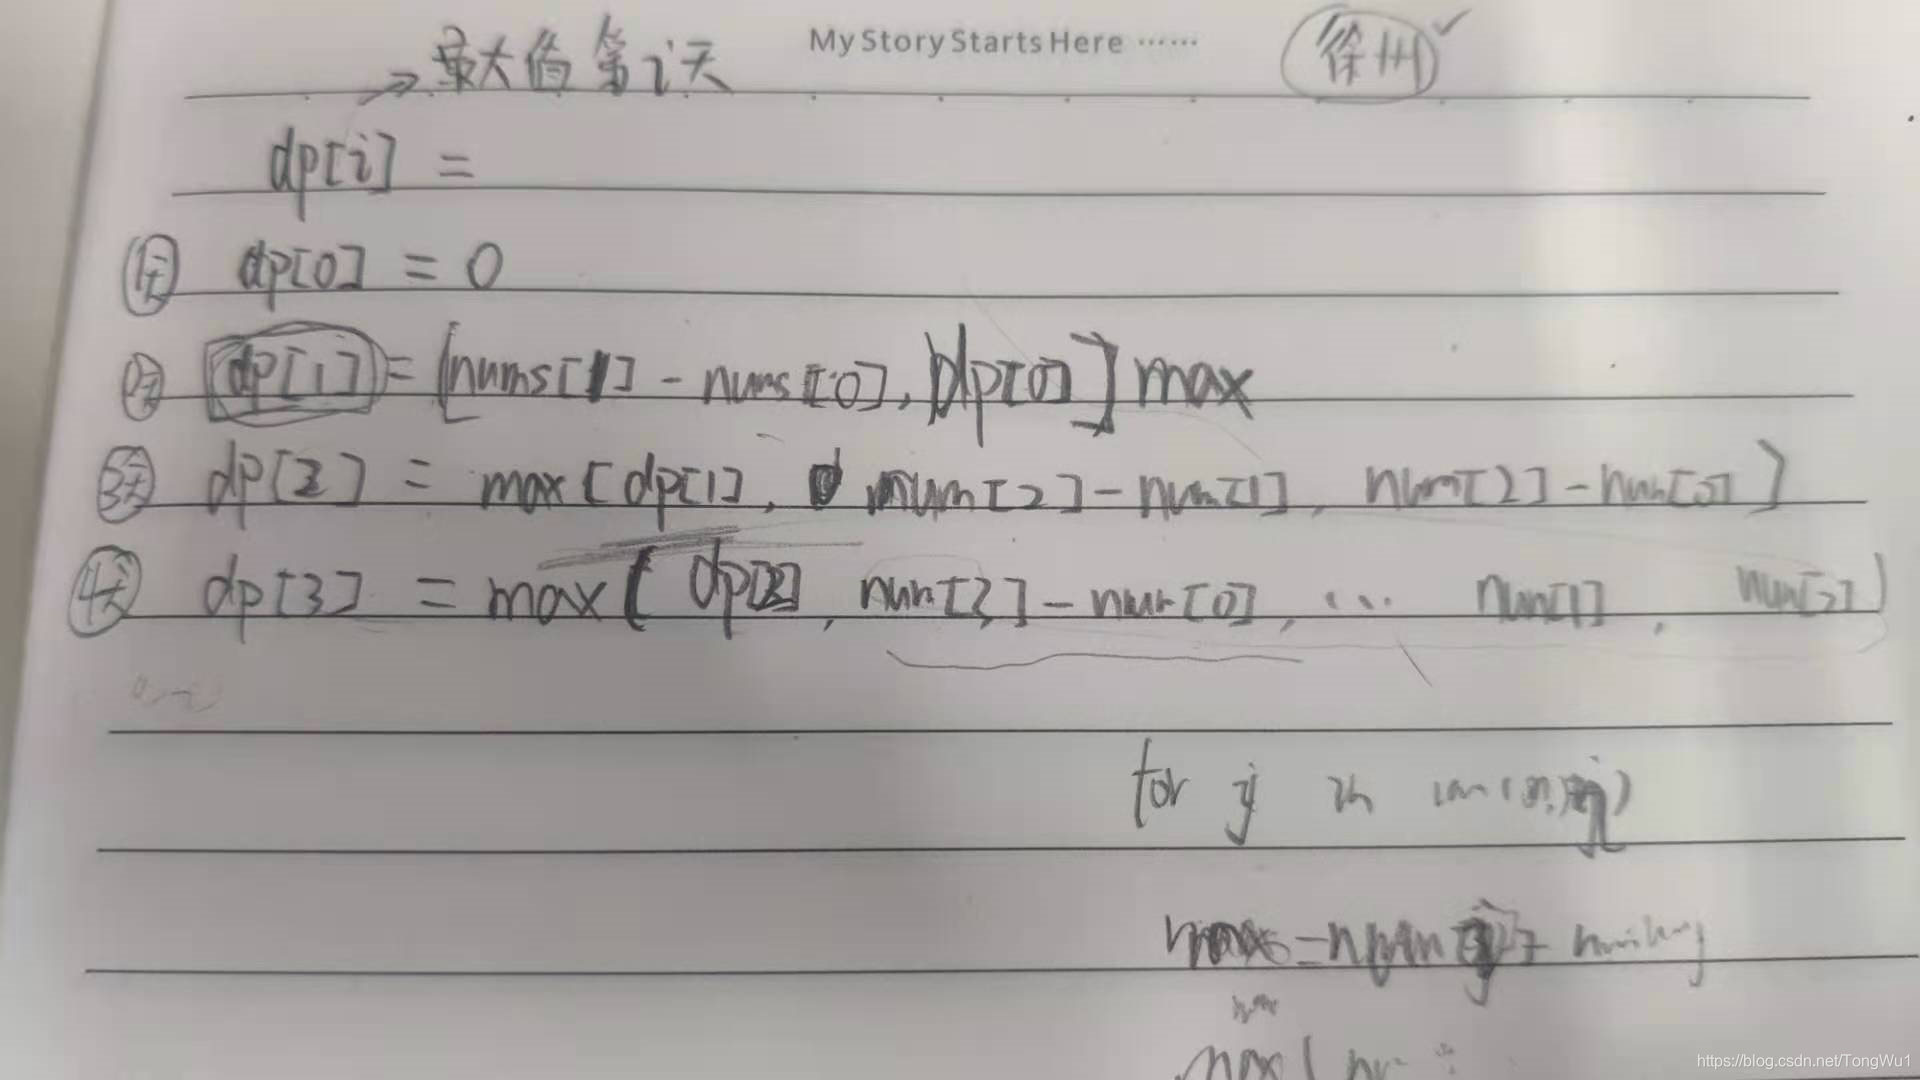 My Story Starts Here ······
徐州
最大值 第i天
dp[i] =
1天 dp[0] = 0
dp[1] = [nums[1] - nums[0], dp[0]] max
3天 dp[2] = max[dp[1], num[2] - num[1], num[2] - num[0]]
4天 dp[3] = max[dp[2], num[3] - num[0], ... num[1], num[2]]
for j in
max
https://blog.csdn.net/TongWu1